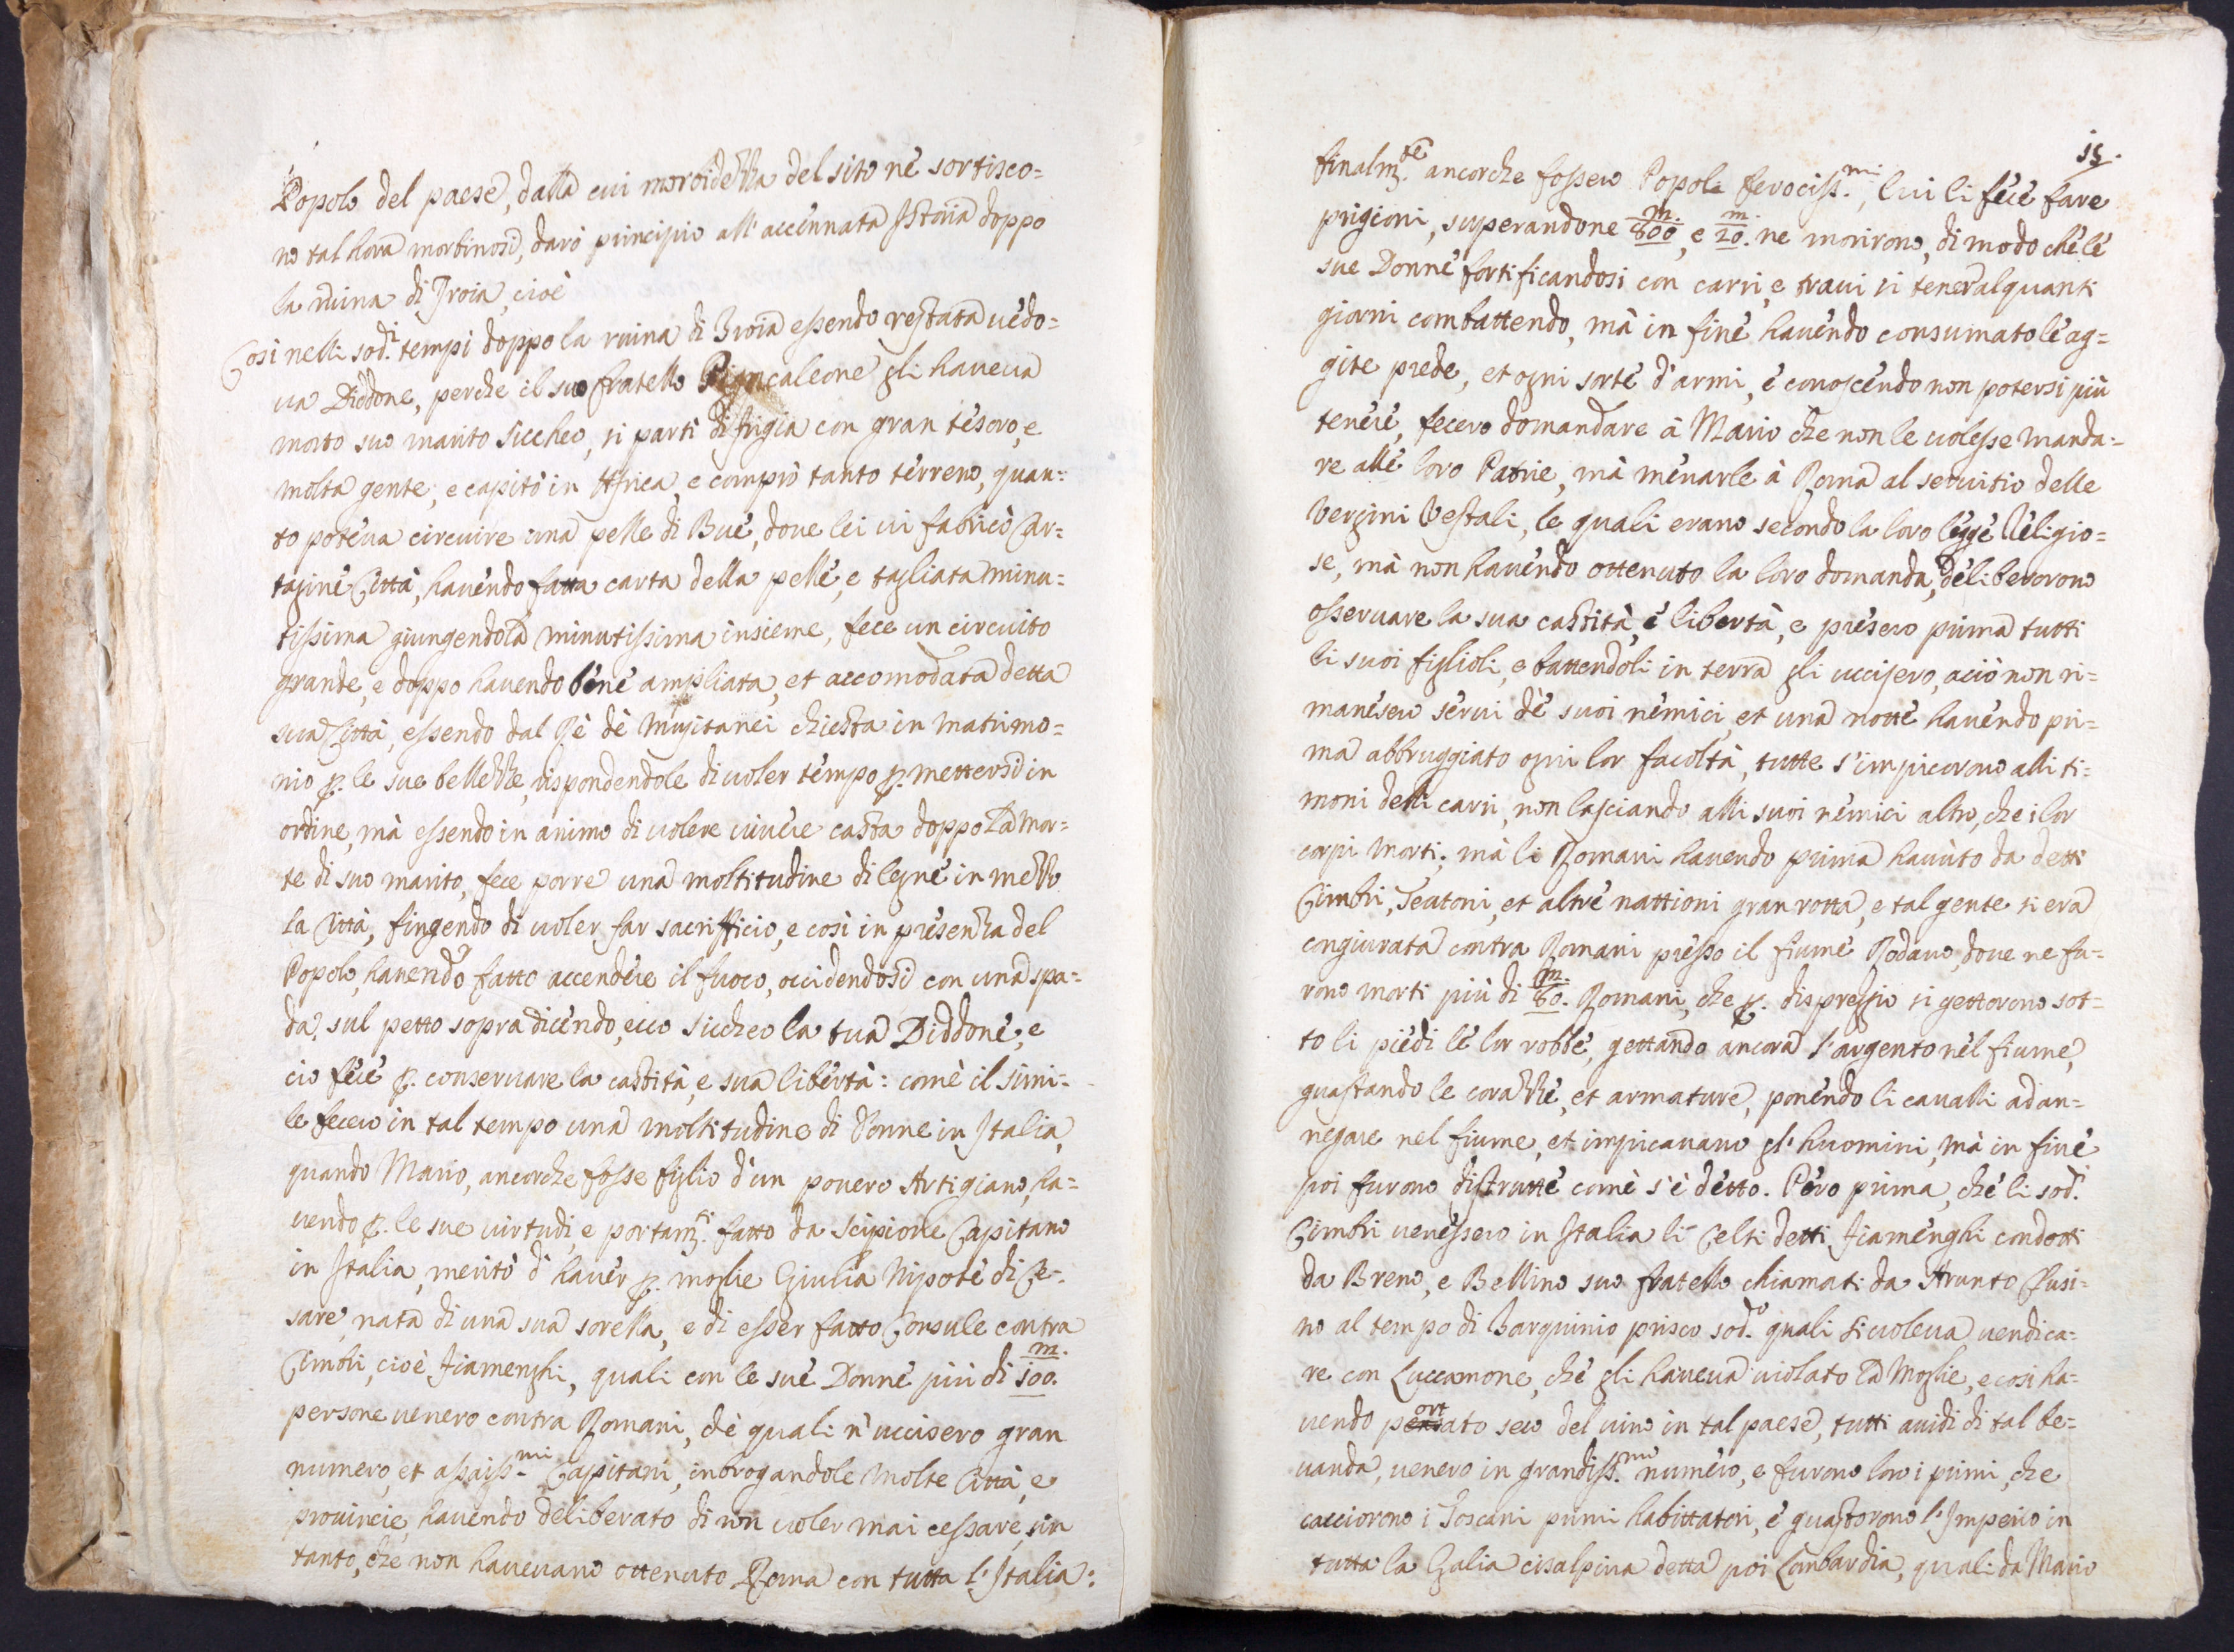 Popolo del paese, dalla cui morbidezza del sito ne sortisco=
no tal hora morbinosi, darò principio all'accennata Istoria doppo
la ruina di Troia, cioè
Così nelli sod.i tempi doppo la ruina di Troia essendo restata uedo=
ua Diddone, perche il suo fratello Pigmaleone gli haueua
morto suo marito Siccheo, si partì di frigia con gran tesoro, e
molta gente, e capitò in Africa, e comprò tanto terreno, quan=
to poteua circuire una pelle di Bue, doue lei ui fabricò Car=
tagine Città, hauendo fatta carta della pelle, e tagliata minu=
tissima giungendola minutissima insieme, fece un circuito
grande, e doppo hauendo bene ampliata, et accomodata detta
sua Città, essendo dal Rè dè Musitanei chiesta in matrimo=
nio p. le sue bellezze, rispondendole di uoler tempo p. mettersi in
ordine, mà essendo in animo di uolere uiuere casta doppo la mor=
te di suo marito, fece porre una moltitudine di legne in mezzo
la Città, fingendo di uoler far sacrifficio, e così in presenza del
Popolo, hauendo fatto accendere il fuoco, occidendosi con una spa=
da, sul petto sopra dicendo, ecco Siccheo la tua Diddone, e
ciò fece p. conseruare la castità, e sua libertà: comè il simi=
le fecero in tal tempo una moltitudine di Donne in Italia,
quando Mario, ancorche fosse figlio d'un pouero Artigiano, ha=
uendo p. le sue uirtudi, e portam.ti fatto da Scipione Capitano
in Italia, meritò d'hauer p. moglie Giulia Nipote di Ce=
sare, nata di una sua sorella, e di esser fatto Consule contra
Cimbri, cioè Fiamenghi, quali con le sue Donne più di 100.m
persone uenero contra Romani, dè quali n'uccisero gran
numero, et assaiss.mi Capitani, inbrogandole molte Città, e
prouincie, hauendo deliberato di non uoler mai cessare, sin
tanto, che non haueuano ottenuto Roma con tutta l'Italia:
15.
finalm.te ancorche fossero Popoli ferociss.mi, lui li fece fare
prigioni, superandone 800.m, e 20.m ne morirono, di modo che le
sue Donne fortificandosi con carri, e traui si tener alquanti
giorni combattendo, mà in fine hauendo consumato le ag=
gite prede, et ogni sorte d'armi, e conoscendo non potersi più
tenere, fecero domandare à Mario che non le uolesse manda=
re alle loro Patrie, mà menarle à Roma al seruitio delle
Vergini Vestali, le quali erano secondo la loro legge Religio=
se, mà non hauendo ottenuto la loro domanda, deliberorono
osseruare la sua castità, e libertà, e presero prima tutti
li suoi figlioli, e battendoli in terra gli uccisero, aciò non ri=
manesero serui dè suoi nemici, et una notte hauendo pri=
ma abbruggiato ogni lor facoltà, tutte s'impicorono alli ti=
moni delli carri, non lasciando alli suoi nemici altro, che i lor
corpi morti; mà li Romani hauendo prima hauuto da detti
Cimbri, Teatoni, et altre nattioni gran rotta, e tal gente si era
congiurata contra Romani presso il fiume Rodano, doue ne fu=
rono morti più di 80.m Romani, che p. disprezzio si gettorono sot=
to li piedi le lor robbe, gettando ancora l'argento nel fiume,
guastando le corazze, et armature, ponendo li caualli ad an=
negare nel fiume, et impicauano gl'huomini, mà in fine
poi furono distrutte come s'è detto. Però prima, che li sod.i
Cimbri uenessero in Italia li Celti detti Fiamenghi condotti
da Breno, e Bellino suo fratello chiamati da Arunto Clusi=
no al tempo di Tarquinio prisco sod.o quali si uoleua uendica=
re con Luccomone, che gli haueua uiolato la Moglie, e così ha=
uendo portato seco del uino in tal paese, tutti auidi di tal be=
uanda, uenero in grandiss.mo numero, e furono loro i primi, che
cacciorono i Toscani primi habittatori, e guastorono l'Imperio in
tutta la Galia cisalpina detta poi Lombardia, quali da Mario